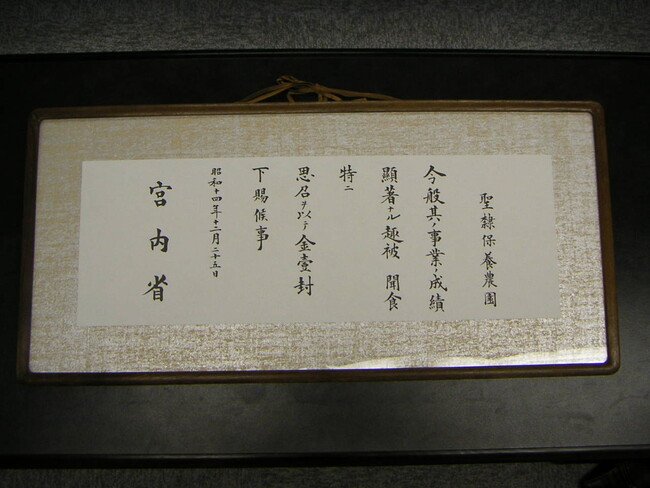 聖隷保養農園
今般其ノ事業ノ成績
顯著ナル趣被 聞食
特ニ
思召ヲ以テ金壹封
下賜候事
昭和十四年十二月二十五日
宮内省